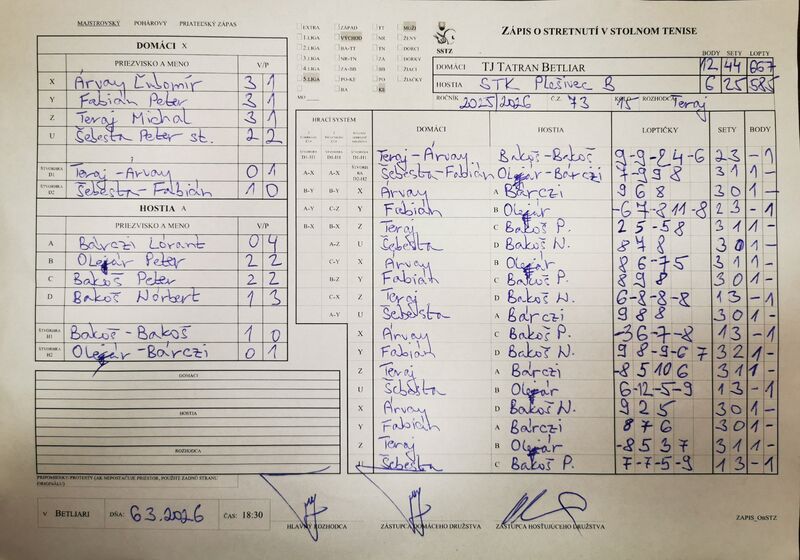 MAJSTROVSKÝ POHÁROVÝ PRIATEĽSKÝ ZÁPAS
DOMÁCI X
PRIEZVISKO A MENO V/P
X Árvay Ľubomír 3 1
Y Fabián Peter 3 1
Z Teraj Michal 3 1
U Šebesta Peter st. 2 2
ŠTVORHRA D1 Teraj-Árvay 0 1
ŠTVORHRA D2 Šebesta-Fabián 1 0
HOSTIA A
PRIEZVISKO A MENO V/P
A Bárczi Lórant 0 4
B Olejár Peter 2 2
C Bakoš Peter 2 2
D Bakoš Nórbert 1 3
ŠTVORHRA H1 Bakoš-Bakoš 1 0
ŠTVORHRA H2 Olejár-Bárczi 0 1
DOMÁCI
HOSTIA
ROZHODCA
PRIPOMIENKY/PROTESTY (AK NEPOSTAČUJE PRIESTOR, POUŽITE ZADNÚ STRANU ORIGINÁLU)
V BETLIARI DŇA: 6.3.2026 ČAS: 18:30
EXTRA ZÁPAD TT MUŽI
1.LIGA VÝCHOD NR ŽENY
2.LIGA BA-TT TN DORCI
3.LIGA NR-TN ZA DORKY
4.LIGA ZA-BB BB ŽIACI
5.LIGA PO-KE PO ŽIAČKY
BA KE
MO
SSTZ
ZÁPIS O STRETNUTÍ V STOLNOM TENISE
BODY SETY LOPTY
DOMÁCI TJ TATRAN BETLIAR 12 44 667
HOSTIA STK Plešivec B 6 25 585
ROČNÍK 2025/2026 Č.Z. 73 KOLO 15 ROZHODCA Teraj
HRACÍ SYSTÉM DOMÁCI HOSTIA LOPTIČKY SETY BODY
Teraj-Árvay Bakoš-Bakoš 9 -9 -8 4 -6 2 3 - 1
Šebesta-Fabián Olejár-Bárczi 7 -9 9 8 3 1 1 -
A-X A-X X Árvay A Bárczi 9 6 8 3 0 1 -
B-Y B-Y Y Fabián B Olejár -6 7 -8 11 -8 2 3 - 1
A-Y C-Z Z Teraj C Bakoš P. 2 5 -5 8 3 1 1 -
B-X B-X U Šebesta D Bakoš N. 8 7 8 3 0 1 -
A-Z X Árvay B Olejár 8 6 -7 5 3 1 1 -
C-Y Y Fabián C Bakoš P. 8 9 8 3 0 1 -
B-Z Z Teraj D Bakoš N. 6 -8 -8 -8 1 3 - 1
C-X U Šebesta A Bárczi 9 8 8 3 0 1 -
A-Y X Árvay C Bakoš P. -3 6 -7 -8 1 3 - 1
Y Fabián D Bakoš N. 9 8 -9 -6 7 3 2 1 -
Z Teraj A Bárczi -8 5 10 6 3 1 1 -
U Šebesta B Olejár 6 -12 -5 -9 1 3 - 1
X Árvay D Bakoš N. 9 2 5 3 0 1 -
Y Fabián A Bárczi 8 7 6 3 0 1 -
Z Teraj B Olejár -8 5 3 7 3 1 1 -
U Šebesta C Bakoš P. 7 -7 -5 -9 1 3 - 1
HLAVNÝ ROZHODCA ZÁSTUPCA DOMÁCEHO DRUŽSTVA ZÁSTUPCA HOSŤUJÚCEHO DRUŽSTVA
ZAPIS_OnSTZ